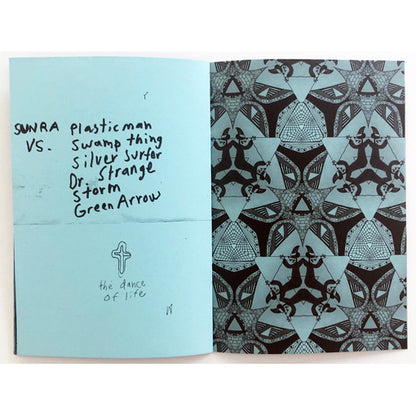 SUNRA Plasticman
VS. Swamp thing
Silver Surfer
Dr. Strange
Storm
Green Arrow
the dance
of life